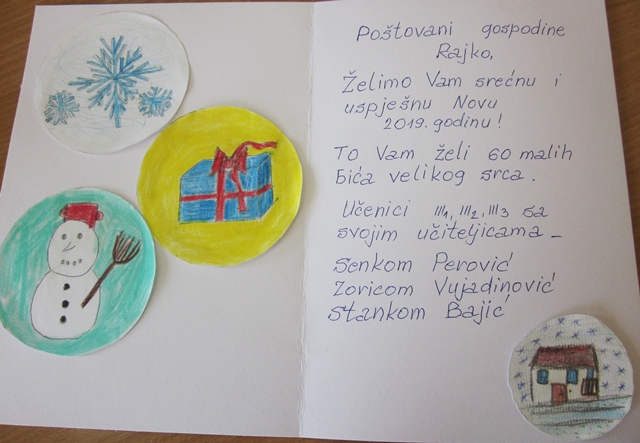 Poštovani gospodine
Rajko,
Želimo Vam srećnu i
uspješnu Novu
2019. godinu!
To Vam želi 60 malih
bića velikog srca.
Učenici III1, III2, III3 sa
svojim učiteljicama –
Senkom Perović
Zoricom Vujadinović
Stankom Bajić